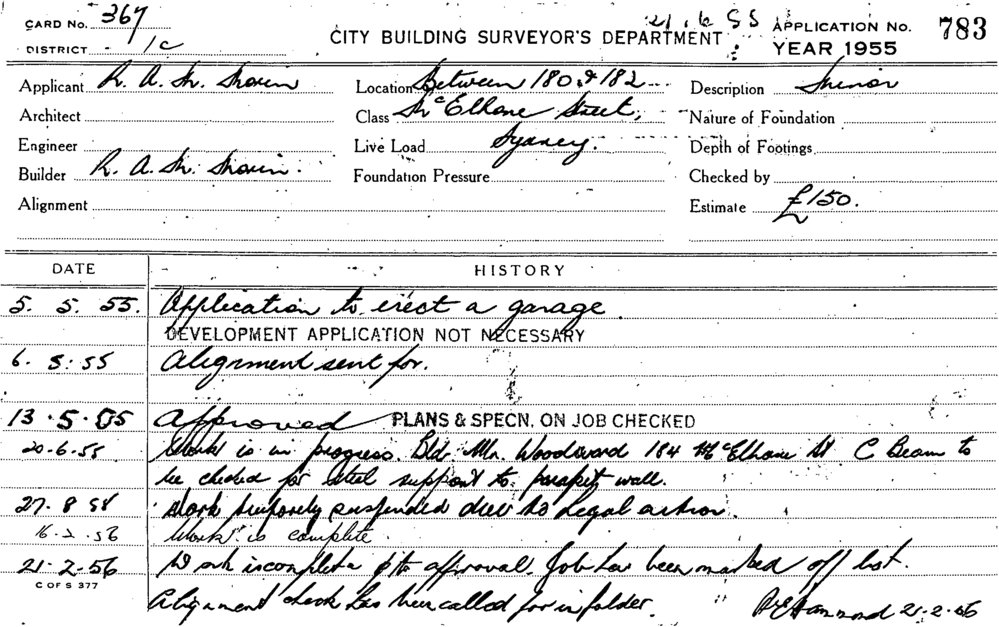 CARD No. 367
DISTRICT 1c
CITY BUILDING SURVEYOR'S DEPARTMENT
21.6.55
APPLICATION No. 783
YEAR 1955
Applicant R. A. Mc.
Location Between 180 & 182
Description Minor
Architect
Class McElhone Street,
Nature of Foundation
Engineer
Live Load Sydney.
Depth of Footings
Builder R. A. Mc.
Foundation Pressure
Checked by
Alignment
Estimate £150.
DATE
HISTORY
5. 5. 55. Application to erect a garage.
DEVELOPMENT APPLICATION NOT NECESSARY
6. 5. 55 Alignment sent for.
13.5.55 Approved PLANS & SPECN. ON JOB CHECKED
20.6.55 Work is in progress. Bld. Mr. Woodward 184 McElhone St C Beam to
be checked for steel support to parapet wall.
27.8.55 Work temporarily suspended due to Legal action.
16.2.56 Work is complete
21.2.56 Work is complete to approval. Job has been marked off list.
C OF S 377
Alignment check has been called for in folder. Hammond 21.2.56